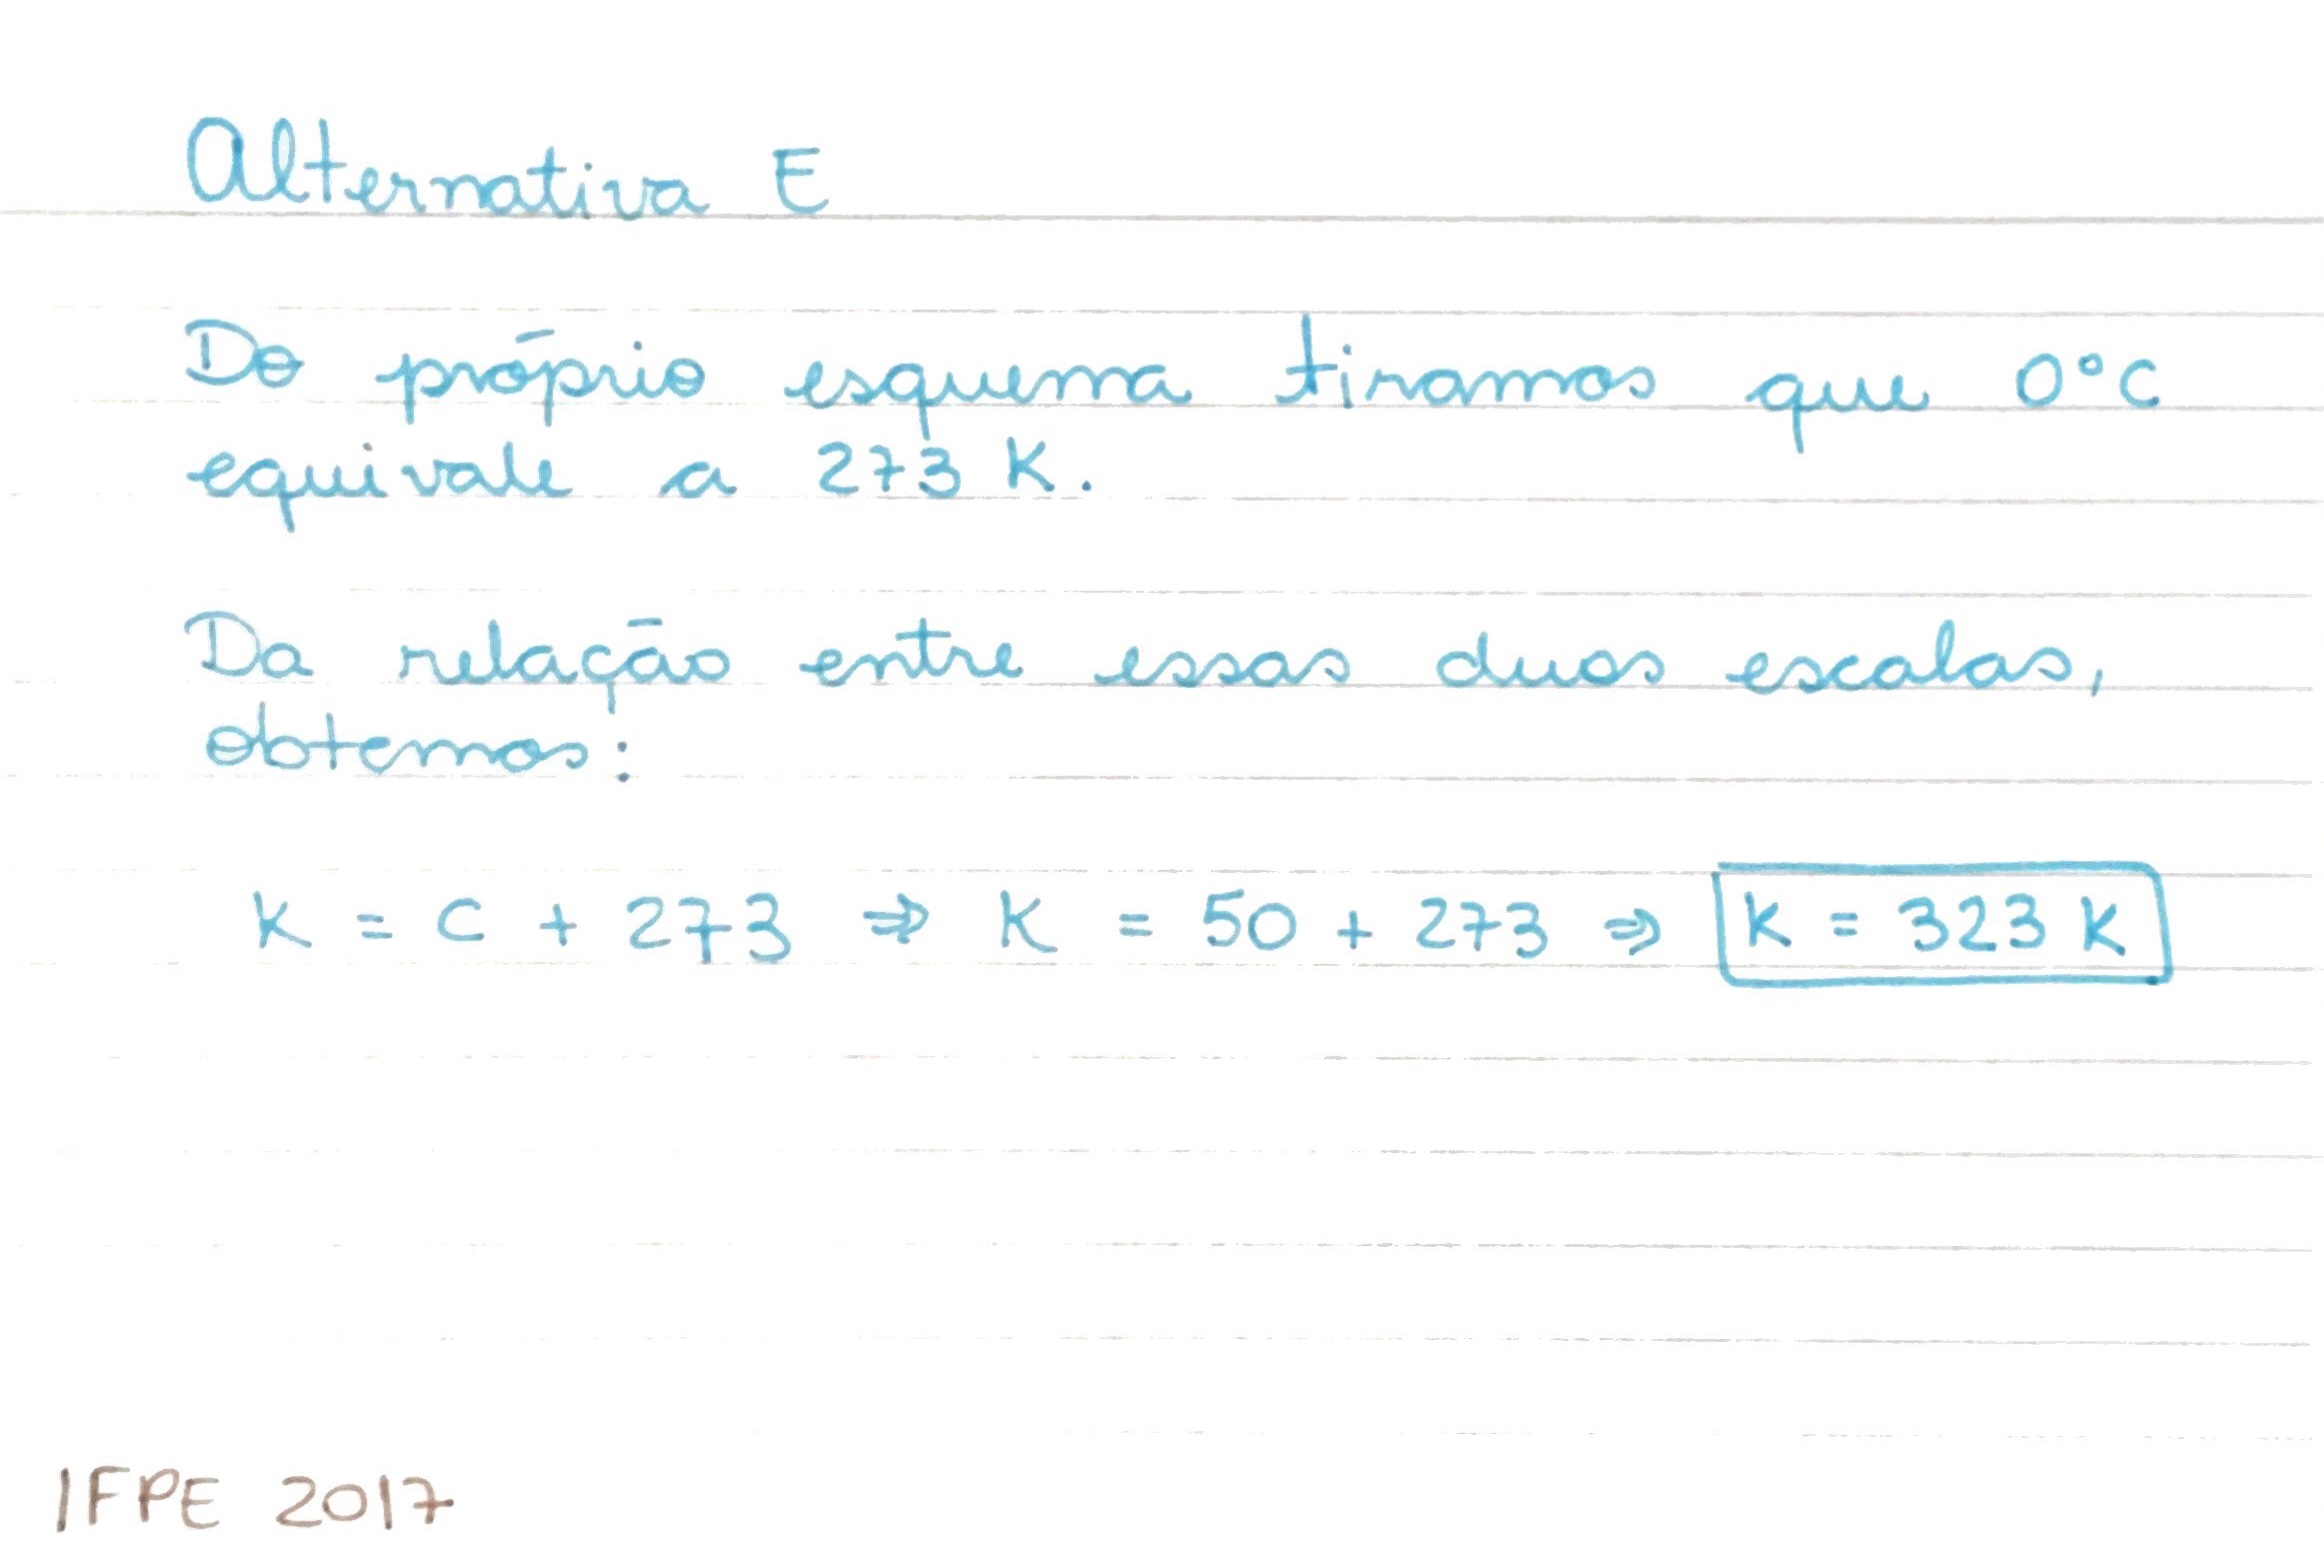 Alternativa E
Do próprio esquema tiramos que 0°C
equivale a 273 K.
Da relação entre essas duas escalas,
obtemos:
K = C + 273 ⇒ K = 50 + 273 ⇒ K = 323 K
IFPE 2017